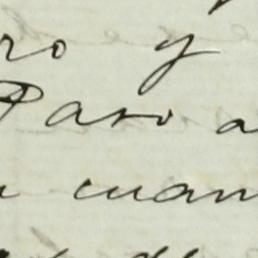 ro y
Paso a
cuan